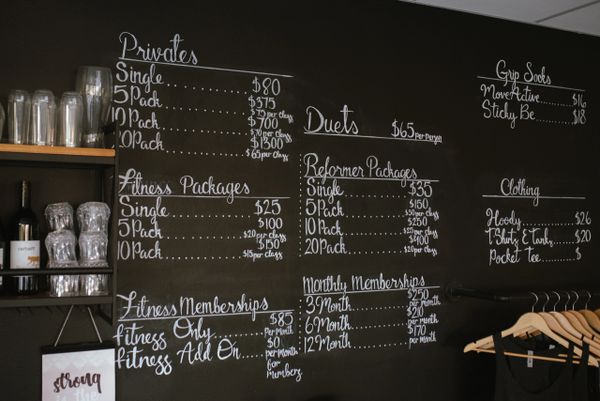 Privates
Single............$80
5 Pack............$375
$75 per class
10 Pack............$700
$70 per class
20 Pack............$1300
$65 per class
Fitness Packages
Single............$25
5 Pack............$100
$20 per class
10 Pack............$150
$15 per class
Fitness Memberships
fitness Only............$85
per month
fitness Add On............$0
per month
for
members
Duets............$65 per person
Reformer Packages
Single............$35
5 Pack............$150
$30 per class
10 Pack............$250
$25 per class
20 Pack............$400
$20 per class
Monthly Memberships
3 Month............$250
per month
6 Month............$210
per month
12 Month............$170
per month
Grip Socks
MoveActive............$16
Sticky Be............$18
Clothing
Hoody............$26
T Shirts & Tanks............$20
Pocket Tee............$
strong
the